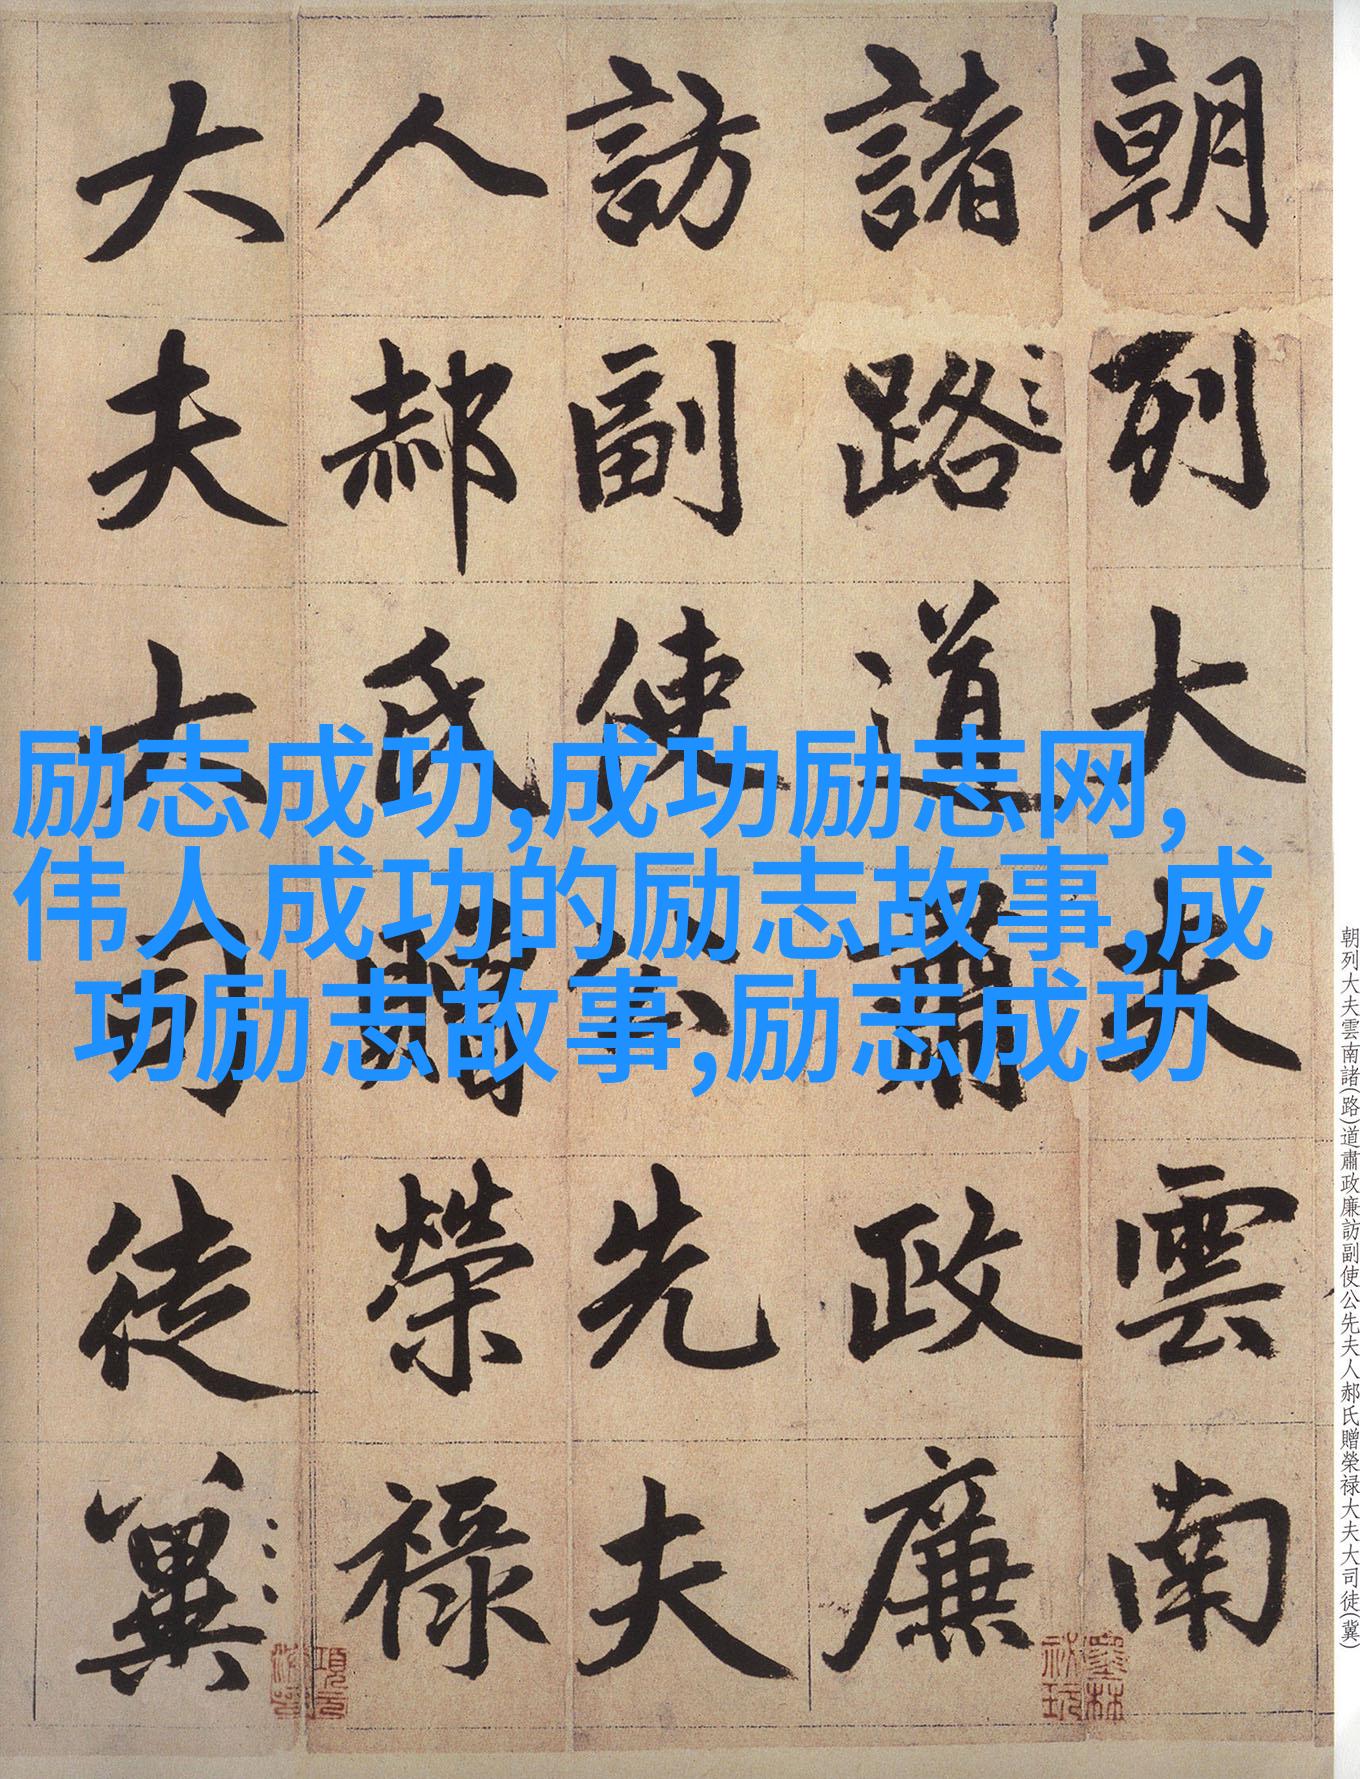 朝列大夫雲南
諸路道肅政廉
訪副使公先夫
人郝氏贈榮祿
大夫大司徒冀
励志成功,成功励志网,
伟人成功的励志故事,成
功励志故事,励志成功
朝列大夫雲南諸(路)道肅政廉訪副使公先夫人郝氏贈榮禄大夫大司徒(冀)